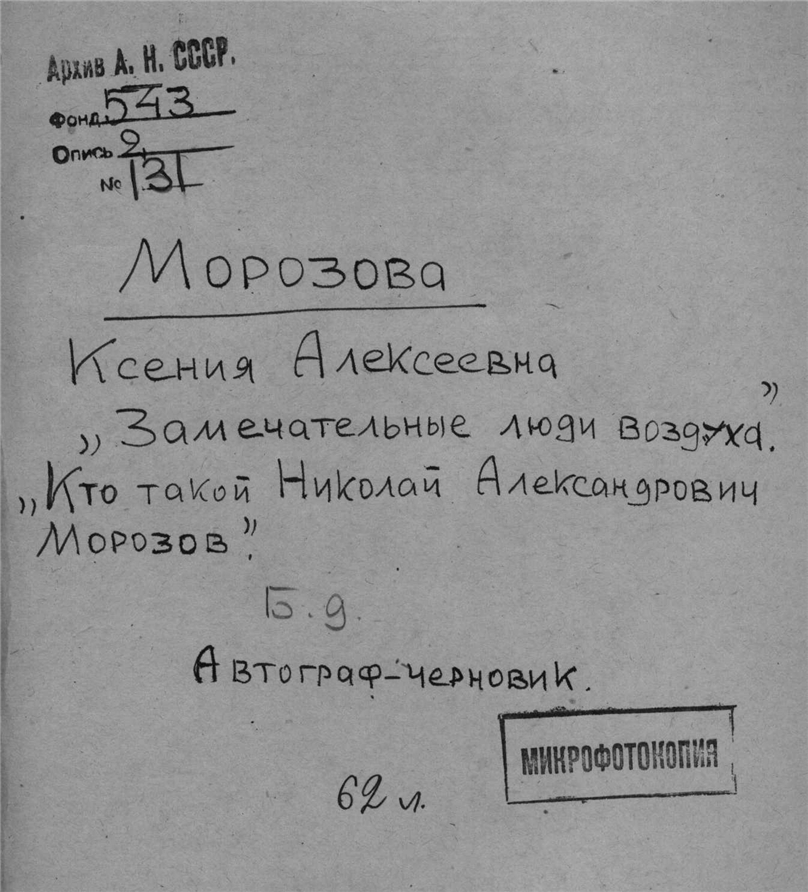 Архив А. Н. СССР.
Фонд 543
Опись 2
№ 131
Морозова
Ксения Алексеевна
„Замечательные люди воздуха."
„Кто такой Николай Александрович
Морозов".
Б. д.
Автограф-черновик.
МИКРОФОТОКОПИЯ
62 л.